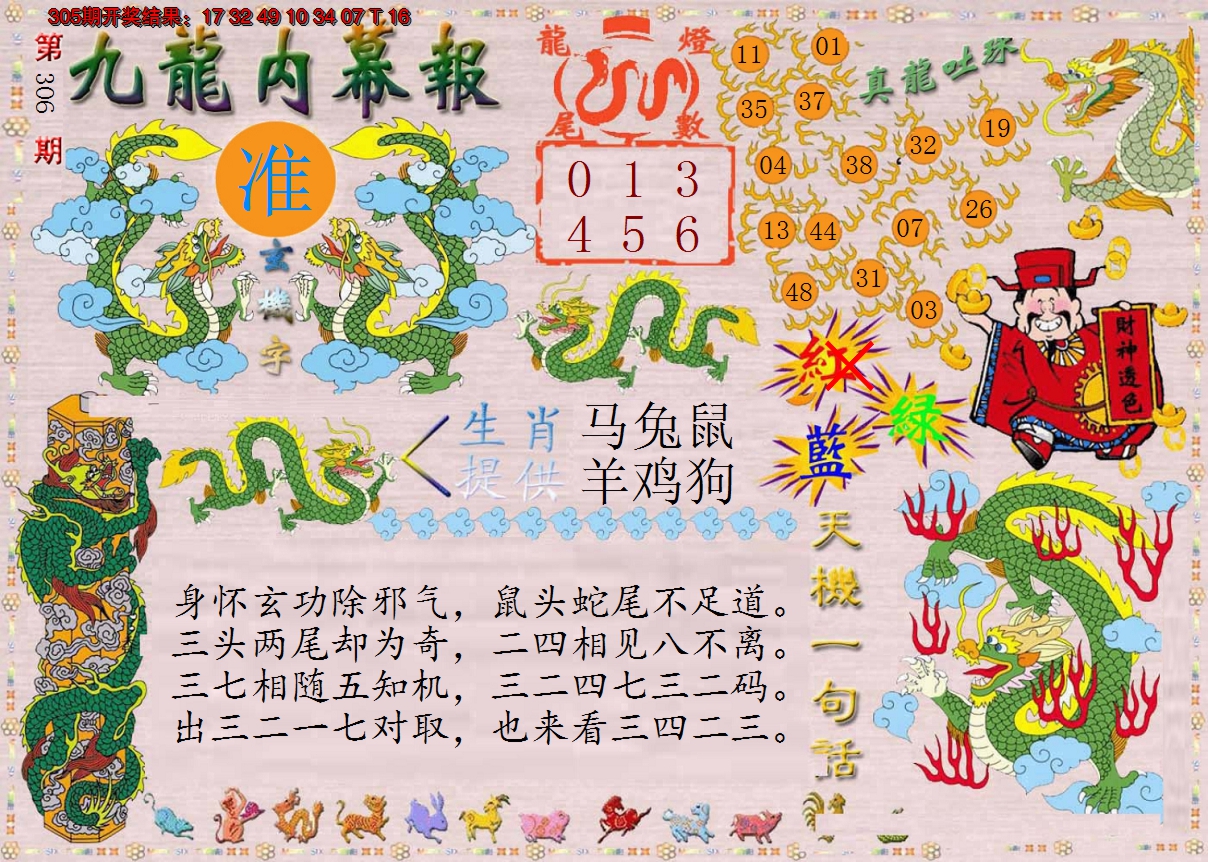 305期开奖结果：17 32 49 10 34 07 T 16
第
306
期
九龍内幕報
准
玄
機
字
龍 燈
尾 數
0 1 3
4 5 6
真龍吐珠
11
01
35
37
04
38
32
19
13
44
07
26
48
31
03
紅
綠
藍
財神透色
生肖
提供
马兔鼠
羊鸡狗
天機一句話
身怀玄功除邪气，鼠头蛇尾不足道。
三头两尾却为奇，二四相见八不离。
三七相随五知机，三二四七三二码。
出三二一七对取，也来看三四二三。